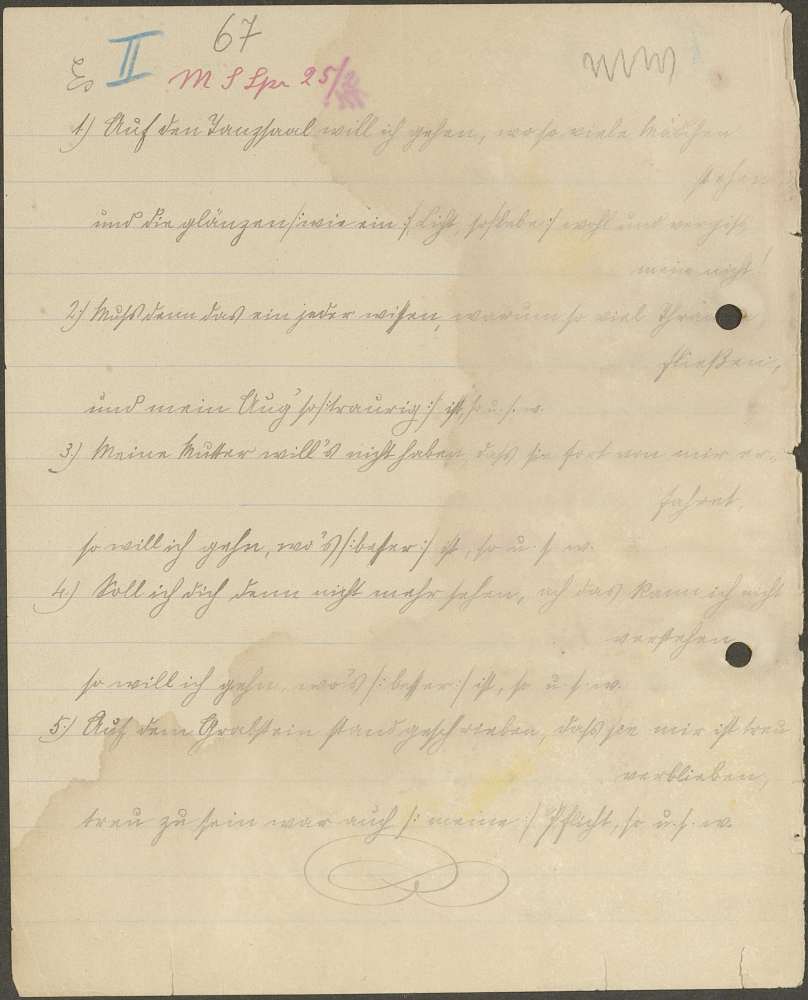 67
Es II M S Spr 25/2
1.) Auf den Tanzsaal will ich gehen, wo so viele Mädchen
stehen
und die glänzen /: wie ein :/ Licht, so /: lebe :/ wohl und vergiß
mein nicht!
2.) Muß denn das ein jeder wissen, warum so viel Thränen
fließen,
und mein Aug' so /: traurig :/ ist, so u. s. w.
3.) Meine Mutter will's nicht haben, daß sie fort von mir er-
fahret,
so will ich gehn, wo's /: besser :/ ist, so u. s. w.
4.) Soll ich dich denn nicht mehr sehen, ach das kann ich nicht
verstehen
so will ich gehn, wo's /: besser :/ ist, so u. s. w.
5.) Auf dem Grabstein stand geschrieben, daß sie mir ist treu
verblieben,
treu zu sein war auch /: meine :/ Pflicht, so u. s. w.